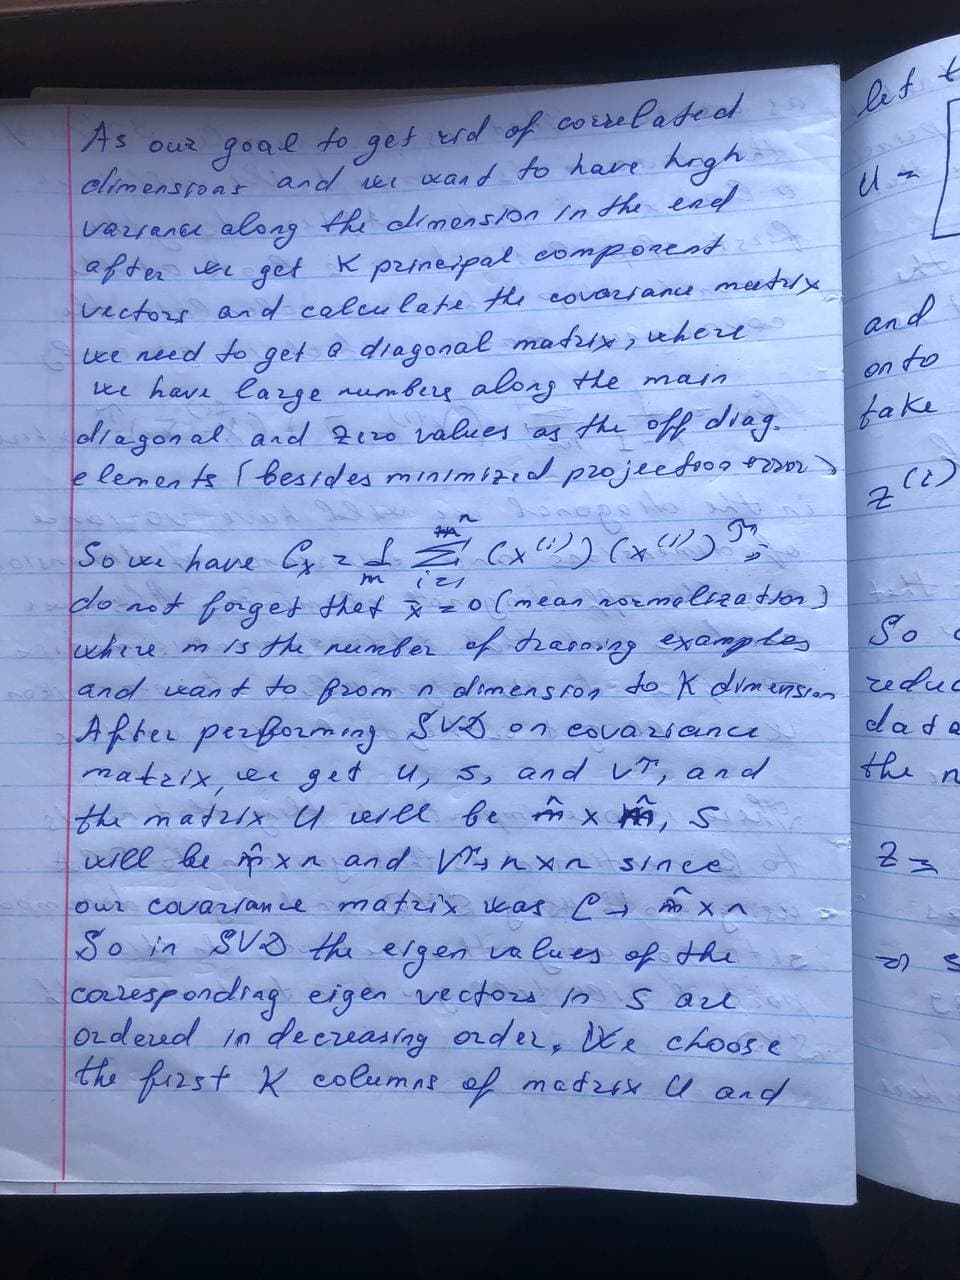 As our goal to get rid of correlated
dimensions and we want to have high
variance along the dimension in the end
after we get K principal component
vectors and calculate the covariance matrix
we need to get a diagonal matrix, where
we have large numbers along the main
diagonal and zero values as the off diag.
elements (besides minimized projection error)
So we have Cx = 1/m Σ i=1 n (x^(i)) (x^(i))^T;
do not forget that x̄ = 0 (mean normalization)
where m is the number of training examples
and want to from n dimension to K dimension
After performing SVD on covariance
matrix, we get U, S, and V^T, and
the matrix U will be m̂ x m̂, S
will be m̂ x n and V^T → n x n since
our covariance matrix was C → m̂ x n
So in SVD the eigen values of the
corresponding eigen vectors in S are
ordered in decreasing order. We choose
the first K columns of matrix U and
let
U =
and
onto
take
z^(i)
So
reduc
data
the n
Z =